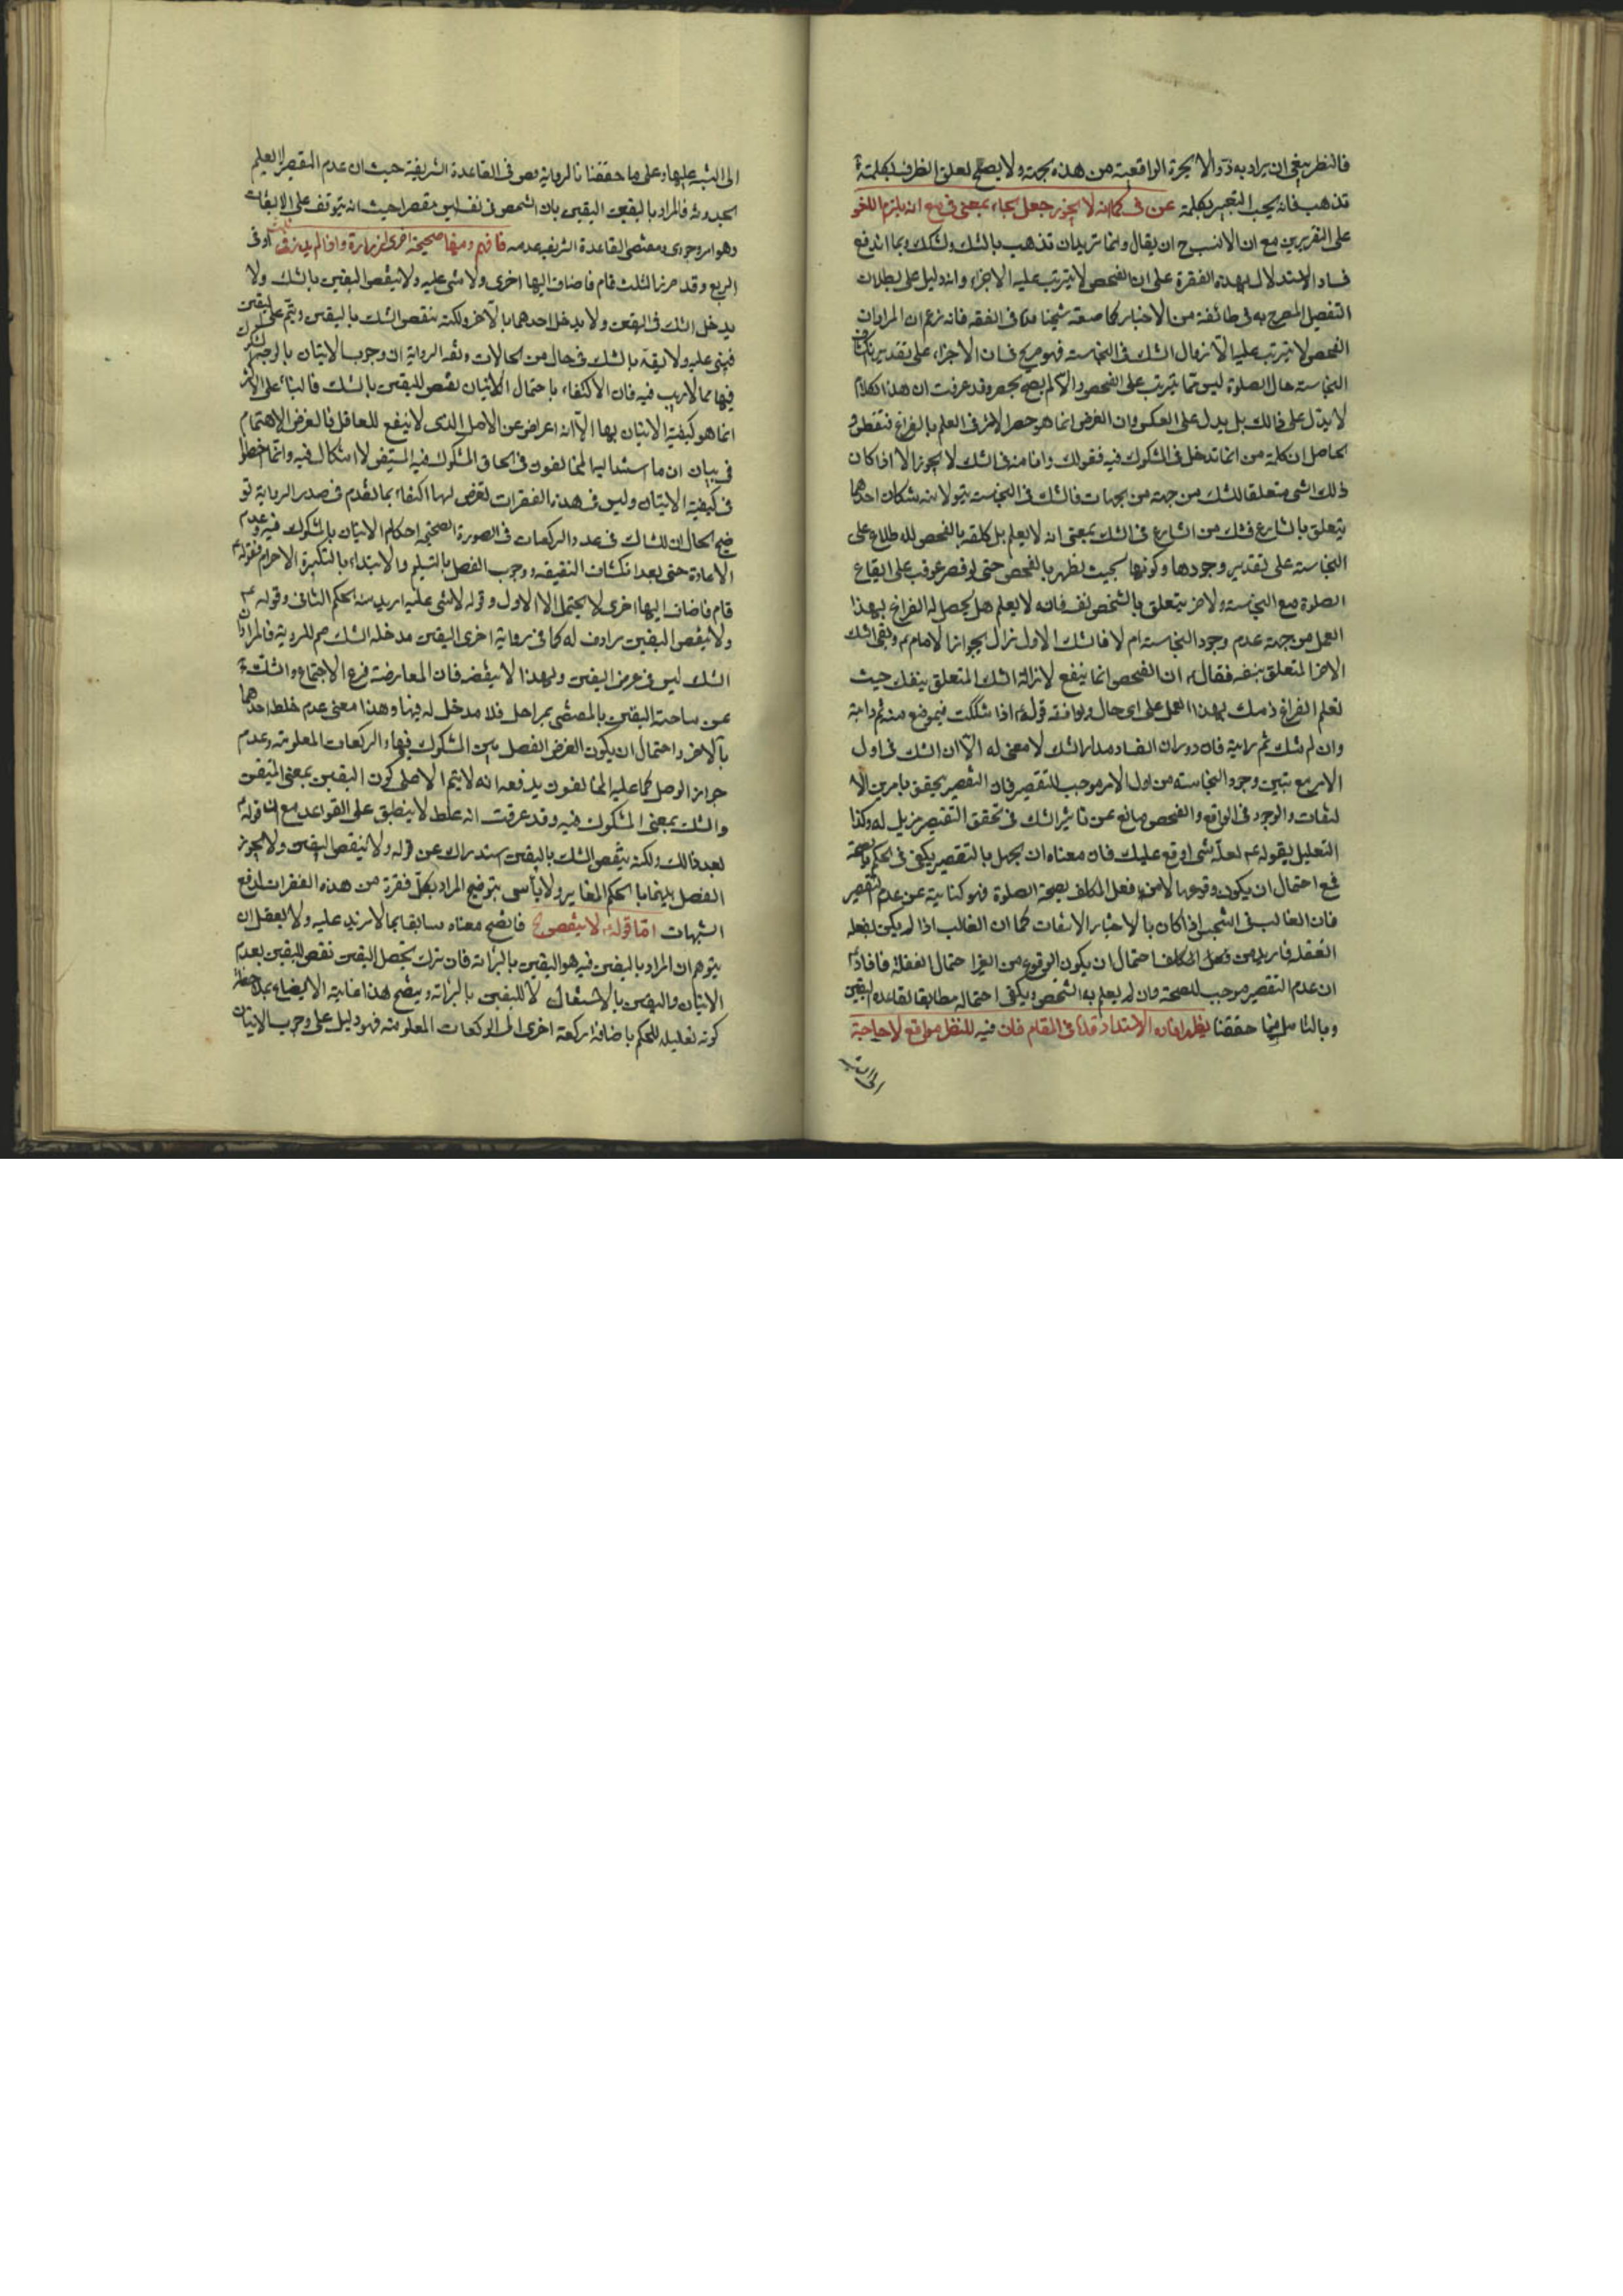 فالنظر ينبغى ان يراد به ذو الاجرة الواقعية من هذه بجهته ولا يصلح لعلق الظرف بكلمة
تذهب فانه يجب التعبير بكلمة عن فى كما انه لا يجوز جعل الجاء بمعنى فى مع انه يلزم اللغو
على التقريرين مع ان الانسب ح ان يقال وانما تريد ان تذهب بالشك ولشكك وبما اندفع
فساد الاستدلال بهذه الفقرة على ان الفحص لا يترتب عليه الاجزاء وانه دليل على بطلان
التفصيل المصرح به فى طائفة من الاخبار كما صنعه شيخنا فى الفقه فانه زعم ان المراد ان
الفحص لا يترتب عليه الا زوال الشك فى النجاسة فهو صريح فى ان الاجزاء على تقدير
النجاسة حال الصلوة ليس مما يترتب على الفحص والا لم يصح الحصر وقد عرفت ان هذا الكلام
لا يدل على ذالك بل يدل على العكس وان الغرض انما هو حصر الاثر فى العلم بالفراغ فتفطن و
الحاصل ان كلمة من انما تدخل فى المشكوك فيه فقولك وانا منه فى شك لا يجوز الا اذا كان
ذلك الشئ متعلقا للشك من جهة من الجهات فالشك فى النجاسة يتولا منه شكان احدهما
يتعلق بالشارع فشك من الشارع فى الشك بمعنى انه لا يعلم بل كلفه بالفحص للاطلاع على
النجاسة على تقدير وجودها وكونها بحيث تظهر بالفحص حتى لو قصر عوقب على ايقاع
الصلوة مع النجاسة والاخر يتعلق بالشخص نفسه فانه لا يعلم هل يحصل له الفراغ بهذا
العمل من جهة عدم وجود النجاسة ام لا فالشك الاول زال بجواز الامام ع وبقى الشك
الاخر المتعلق بنفسه فقال ع ان الفحص انما ينفع لازالة الشك المتعلق بنفسك حيث
تعلم الفراغ ذمتك بهذا العمل على اى حال ويوافقه قوله ع اذا شككت فى موضع منه ثم رايته
وان لم تشك ثم رايته فان دوران الفساد مدار الشك لا معنى له الا ان الشك فى اول
الامر مع تبين وجود النجاسة من اول الامر موجب للتقصير فان التقصير يحقق بامرين الا
لتفات والوجود فى الواقع والفحص مانع عن تاثير الشك فى تحقق التقصير مزيل له وكذا
التعليل بقوله ع لعله شئ اوقع عليك فان معناه ان الجهل بالتقصير يكفى فى الحكم بالصحة
فمع احتمال ان يكون وقوعها لا من فعل المكلف بصحة الصلوة فهو كناية عن عدم التقصير
فان الغالب فى التنجس اذا كان بالاختيار الالتفات كما ان الغالب اذا لم يكن بفعله
الغفلة فاريد من فعل المكلف احتمال ان يكون الوقوع من الغير احتمال الغفلة فافاد ع
ان عدم التقصير موجب للصحة وان لم يعلم به الشخص ويكفى احتماله مطابقا لقاعدة اليقين
وبالتامل فيما حققنا يظهر ما افاده الاستاد قده فى المقام فان فيه للنظر مواقع لا حاجة
الى التنبيه
الى التنبيه عليها وعلى ما حققنا فالرواية نص فى القاعدة الشريفة حيث ان عدم التقصير لا يعلم
الحدوثه فالمراد باليقين اليقين بان الشخص فى نفسه ليس مقصرا حيث انه يتوقف على الالتفات
وهو امر وجودى ومقتضى القاعدة الشريفة عدمه فافهم ومنها صحيحة اخرى لزرارة واذا لم يدر فى ثلث او فى
اربع وقد احرز الثلث قام فاضاف اليها اخرى ولا شئ عليه ولا ينقض اليقين بالشك ولا
يدخل الشك فى اليقين ولا يدخل احدهما بالآخر ولكنه ينقض الشك باليقين ويتم على اليقين
فيبنى عليه ولا يعتد بالشك فى حال من الحالات وفقه الرواية ان وجوب الاتيان بالوجه المشكوك
فيها مما لا ريب فيه فان الاكتفاء باحتمال الاتيان نقض لليقين بالشك فالبناء على الاكثر
انما هو كيفية الاتيان بها الا انه اعراض عن الاصل الذى لا ينفع للعاقل فالغرض الاهتمام
فى بيان ان ما استند اليه المخالفون فى الحاق المشكوك فيه المتيقن لا اشكال فيه وانما اخطاوا
فى كيفية الاتيان وليس فى هذه الفقرات تعرض لها اكتفاء بما تقدم فى صدر الرواية تو
ضيح الحال ان للشاك فى عدد الركعات فى الصورة الصحيحة احكام الاتيان بالمشكوك فيه وعدم
الاعادة حتى بعد انكشاف النقيصة ووجوب الفصل بالتسليم والابتداء بالتكبيرة الاحرام فقوله ع
قام فاضاف اليها اخرى لا يحتمل الا الاول وقوله لا شئ عليه اريد منه الحكم الثانى وقوله ع
ولا ينقض اليقين مرادف له كما فى رواية اخرى اليقين مدخله الشك صم للروية فالمراد ان
الشك ليس فى عرض اليقين ولهذا لا ينقضه فان المعارضة فرع الاجتماع والشك
عن ساحة اليقين بالمقتضى بمراحل فلا مدخل له فيها وهذا معنى عدم خلط احدهما
بالآخر واحتمال ان يكون الغرض الفصل بين المشكوك فيها والركعات المعلومة وعدم
جواز الوصل كما عليه المخالفون يدفعه انه لا يتم الا على كون اليقين بمعنى المتيقن
والشك بمعنى المشكوك فيه وقد عرفت انه غلط لا ينطبق على القواعد مع ان قوله ع
بعد ذالك ولكنه ينقض الشك باليقين استدراك عن قوله ولا ينقض اليقين ولا يجوز
الفصل بينهما بالحكم المغاير ولا باس بتوضيح المراد بكل فقرة من هذه الفقرات لدفع
الشبهات اما قوله ع لا ينقض الخ فاتضح معناه سابقا بما لا مزيد عليه ولا يعقل ان
يتوهم ان المراد باليقين فيه هو اليقين بالبرائة فان ترك تحصيل اليقين نقض لليقين بعدم
الاتيان واليقين بالاشتغال لا لليقين بالبرائة ويتضح هذا غاية الايضاح بملاحظة
كونه تعليلا للحكم باضافة ركعة اخرى الى الركعات المعلومة فهو دليل على وجوب الاتيان